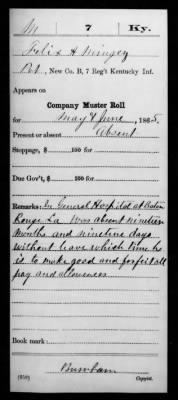 M 7 Ky.
Felix H Mingey
Pvt, New Co. B, 7 Reg't Kentucky Inf.
Appears on
Company Muster Roll
for May & June, 1865.
Present or absent Absent
Stoppage, $ 100 for
Due Gov't, $ 100 for
Remarks: In General Hospital at Baton
Rouge La Was absent nineteen
months and nineteen days
without leave which time he
is to make good and forfeit all
pay and allowences
Book mark:
Burnham
(358) Copyist.